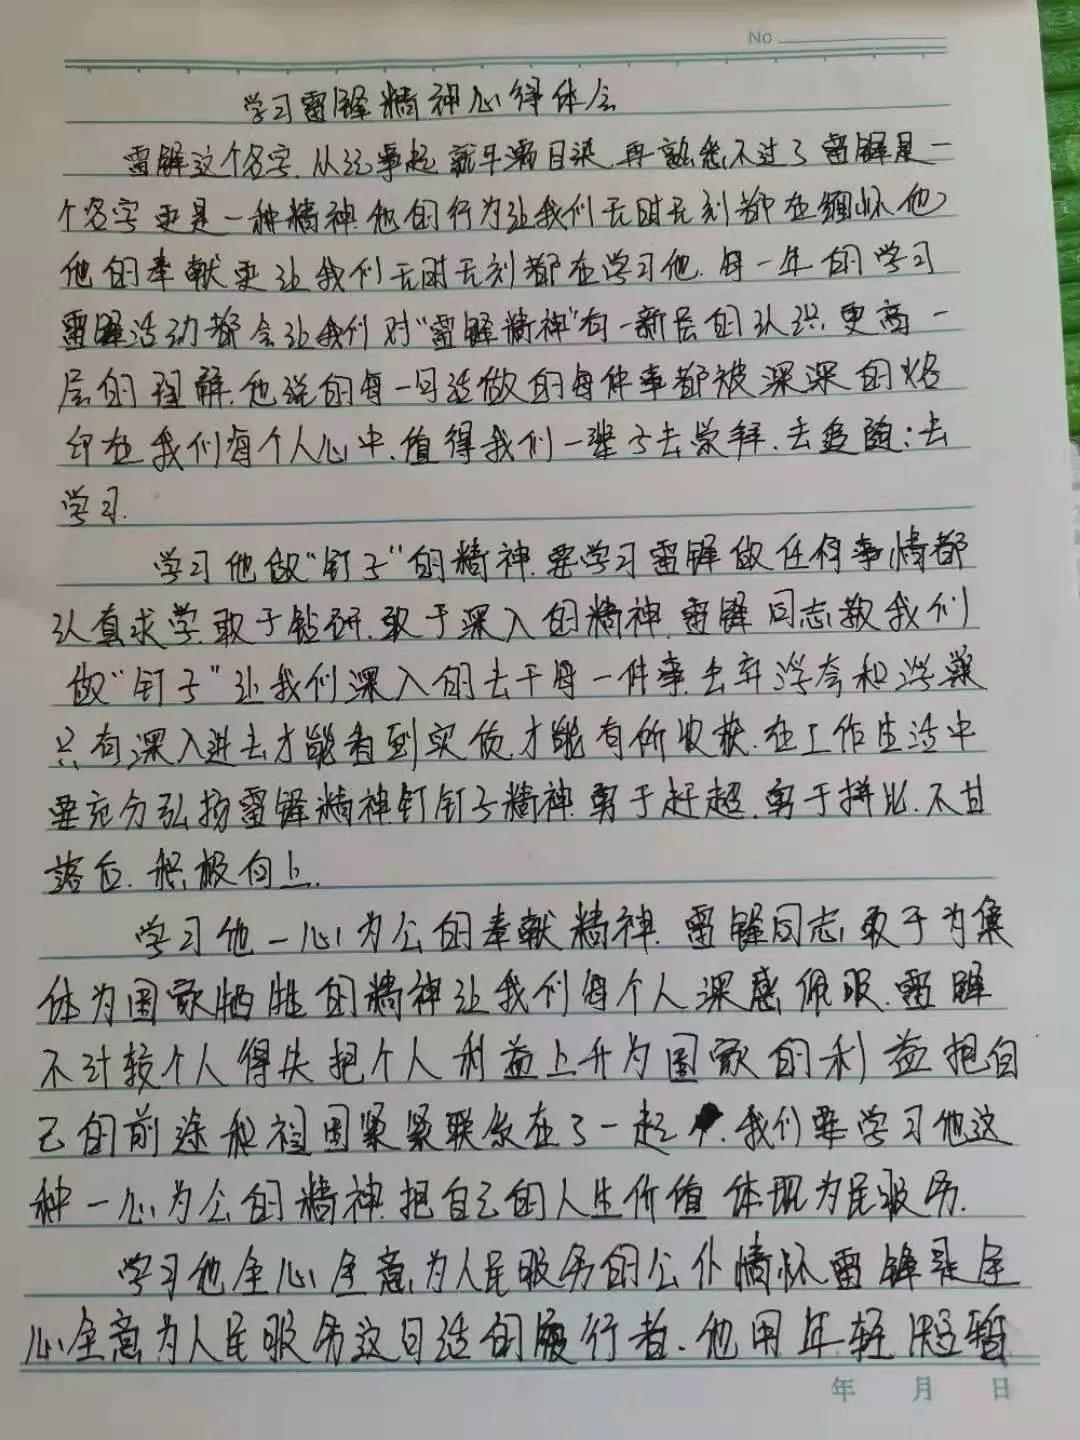 No
学习雷锋精神心得体会
雷锋这个名字,从记事起就耳濡目染,再熟悉不过了雷锋是一
个名字更是一种精神,他的行为让我们无时无刻都在缅怀他
他的奉献更让我们无时无刻都在学习他,每一年的学习
雷锋活动都会让我们对“雷锋精神”有一新层的认识,更高一
层的理解,他说的每一句话做的每件事都被深深的烙
印在我们每个人心中,值得我们一辈子去崇拜,去追随;去
学习.
学习他做“钉子”的精神,要学习雷锋做任何事情都
认真求学,敢于钻研,敢于深入的精神,雷锋同志教我们
做“钉子”让我们深入的去干每一件事,去弃浮夸和浮躁
只有深入进去才能看到实质,才能有所收获,在工作生活中
要充分弘扬雷锋精神钉钉子精神,勇于赶超,勇于拼比,不甘
落后,积极向上.
学习他一心为公的奉献精神,雷锋同志敢于为集
体为国家牺牲的精神让我们每个人深感佩服,雷锋
不计较个人得失把个人利益上升为国家的利益把自
己的前途和祖国紧紧联系在了一起,我们要学习他这
种一心为公的精神,把自己的人生价值体现为民服务.
学习他全心全意为人民服务的公仆情怀雷锋是全
心全意为人民服务这句话的履行者,他用年轻短暂
年 月 日